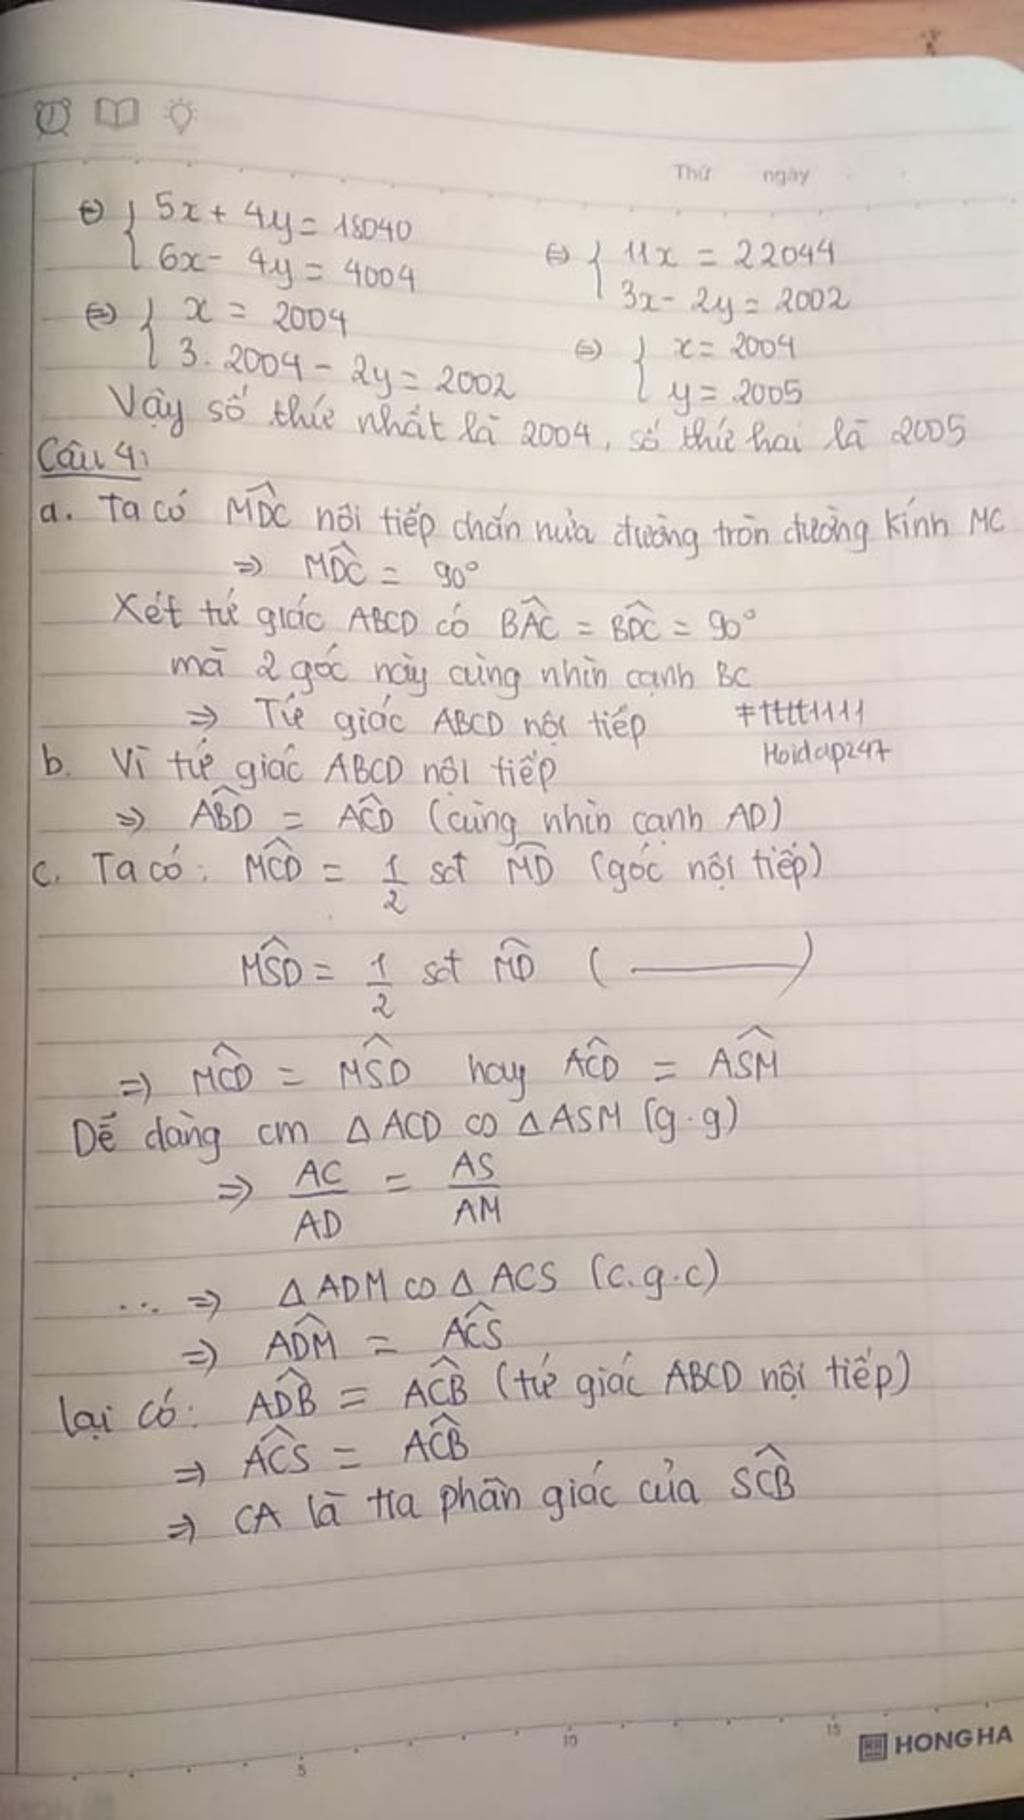 Thứ ngày
⇔ { 5x + 4y = 18040
6x - 4y = 4004
⇔ { 11x = 22044
3x - 2y = 2002
⇔ { x = 2004
3. 2004 - 2y = 2002
⇔ { x = 2004
y = 2005
Vậy số thứ nhất là 2004, số thứ hai là 2005
Câu 4:
a. Ta có MDC^ nội tiếp chắn nửa đường tròn đường kính MC
⇒ MDC^ = 90°
Xét tứ giác ABCD có BAC^ = BDC^ = 90°
mà 2 góc này cùng nhìn cạnh BC
⇒ Tứ giác ABCD nội tiếp
#tttt1111
Hoidap247
b. Vì tứ giác ABCD nội tiếp
⇒ ABD^ = ACD^ (cùng nhìn cạnh AD)
c. Ta có: MCD^ = 1/2 sđ MD^ (góc nội tiếp)
MSD^ = 1/2 sđ MD^ (———)
⇒ MCD^ = MSD^ hay ACD^ = ASM^
Dễ dàng cm Δ ACD ∽ Δ ASM (g.g)
⇒ AC/AD = AS/AM
... ⇒ Δ ADM ∽ Δ ACS (c.g.c)
⇒ ADM^ = ACS^
lại có: ADB^ = ACB^ (tứ giác ABCD nội tiếp)
⇒ ACS^ = ACB^
⇒ CA là tia phân giác của SCB^
5 10 15
HONG HA